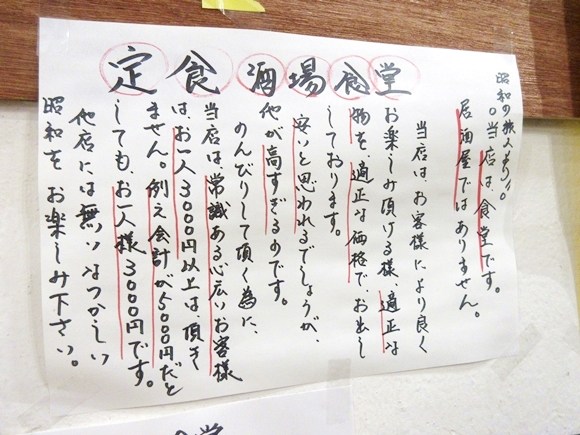 定食酒場食堂
昭和の旅人より〃。
○当店は、食堂です。
居酒屋ではありません。
当店は、お客様により良く
お楽しみ頂ける様、適正な
物を、適正な価格で、お出し
しております。
安いと思われるでしょうが、
他が高すぎるのです。
のんびりして頂く為に、
当店は、常識ある心広いお客様
は、お一人3000円以上は、頂き
ません。例え会計が5000円だと
しても、お一人様3000円です。
他店には無いなつかしい
昭和をお楽しみ下さい。